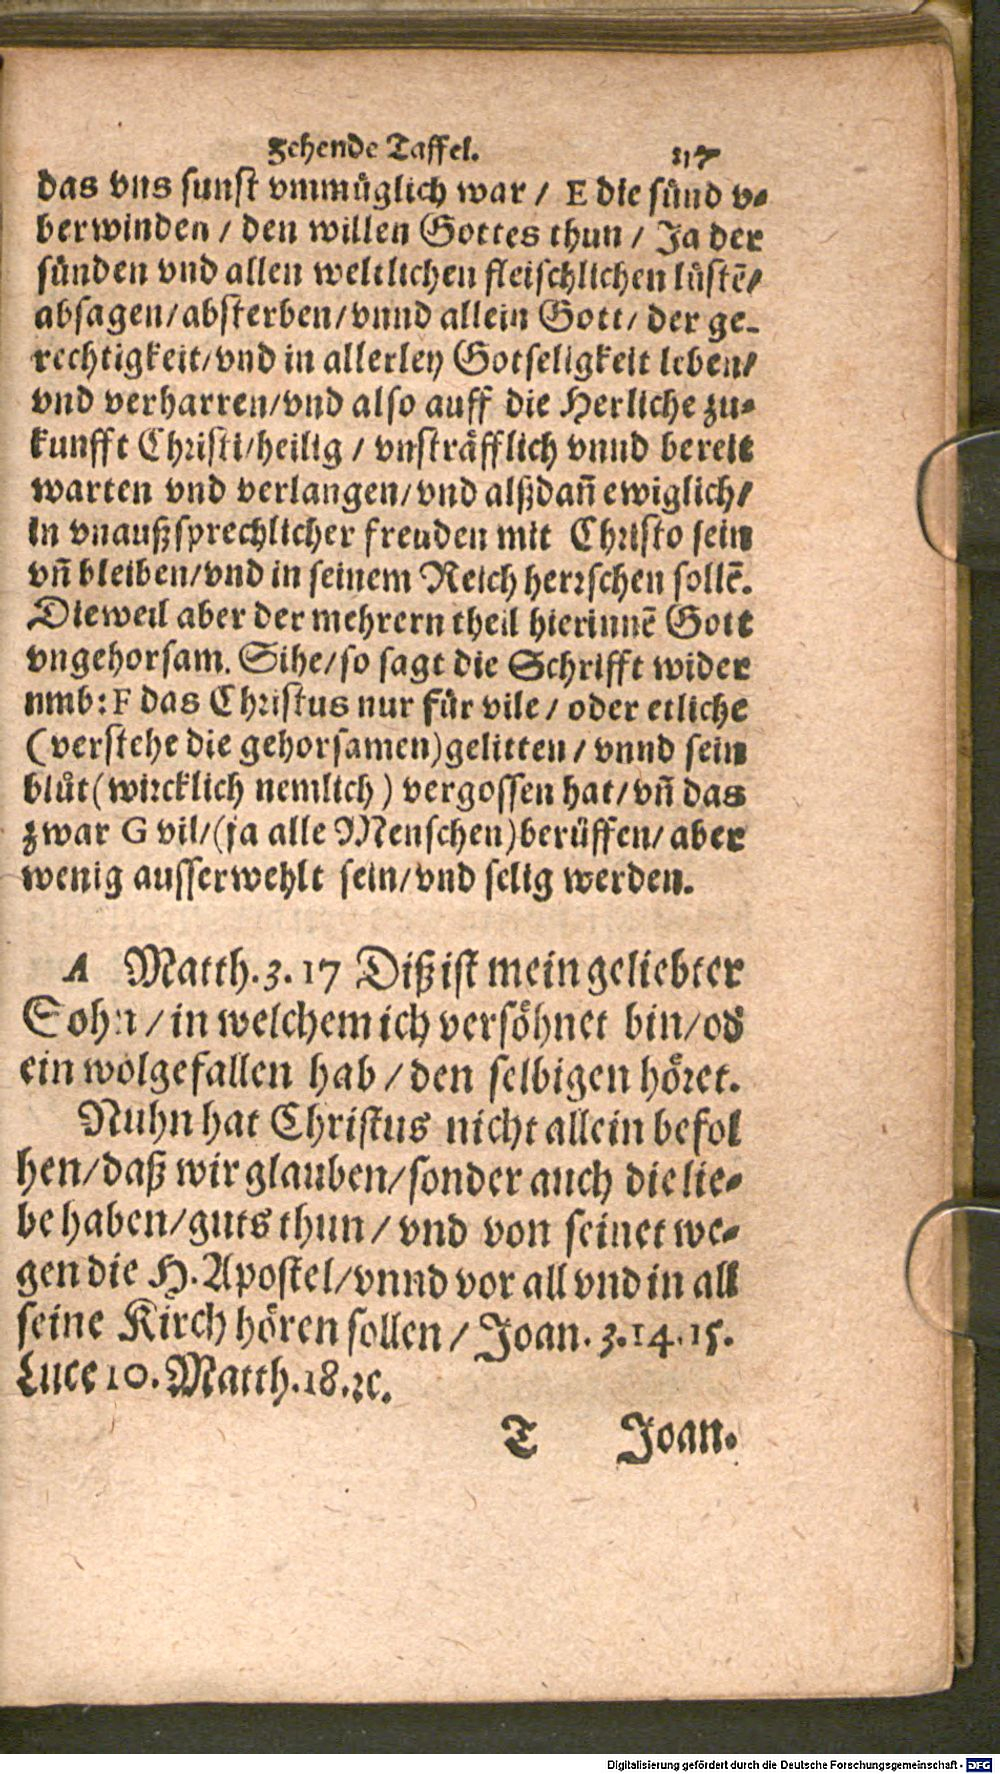 Zehende Taffel. 117
das vns sunst vmmüglich war / E die sünd v-
berwinden / den willen Gottes thun / Ja der
sünden vnd allen weltlichen fleischlichen lüstē/
absagen/absterben/vnnd allein Gott/ der ge-
rechtigkeit/vnd in allerley Gotseligkeit leben/
vnd verharren/vnd also auff die Herliche zu-
kunfft Christi/heilig / vnsträfflich vnnd bereit
warten vnd verlangen/vnd alßdañ ewiglich/
in vnaußsprechlicher freuden mit Christo sein
vñ bleiben/vnd in seinem Reich herrschen sollē.
Dieweil aber der mehrern theil hierinnē Gott
vngehorsam. Sihe/so sagt die Schrifft wider
umb: F das Christus nur für vile / oder etliche
(verstehe die gehorsamen)gelitten / vnnd sein
blůt(wircklich nemlich) vergossen hat/vñ das
zwar G vil/(ja alle Menschen)berüffen/ aber
wenig ausserwehlt sein/vnd selig werden.
A Matth.3.17 Diß ist mein geliebter
Sohn /in welchem ich versöhnet bin/od
ein wolgefallen hab / den selbigen höret.
Nuhn hat Christus nicht allein befol
hen/daß wir glauben/sonder auch die lie-
be haben/guts thun / vnd von seinet we-
gen die H.Apostel/vnnd vor all vnd in all
seine Kirch hören sollen / Joan.3.14.15.
Luce 10.Matth.18.ꝛc.
T Joan.
Digitalisierung gefördert durch die Deutsche Forschungsgemeinschaft - DFG